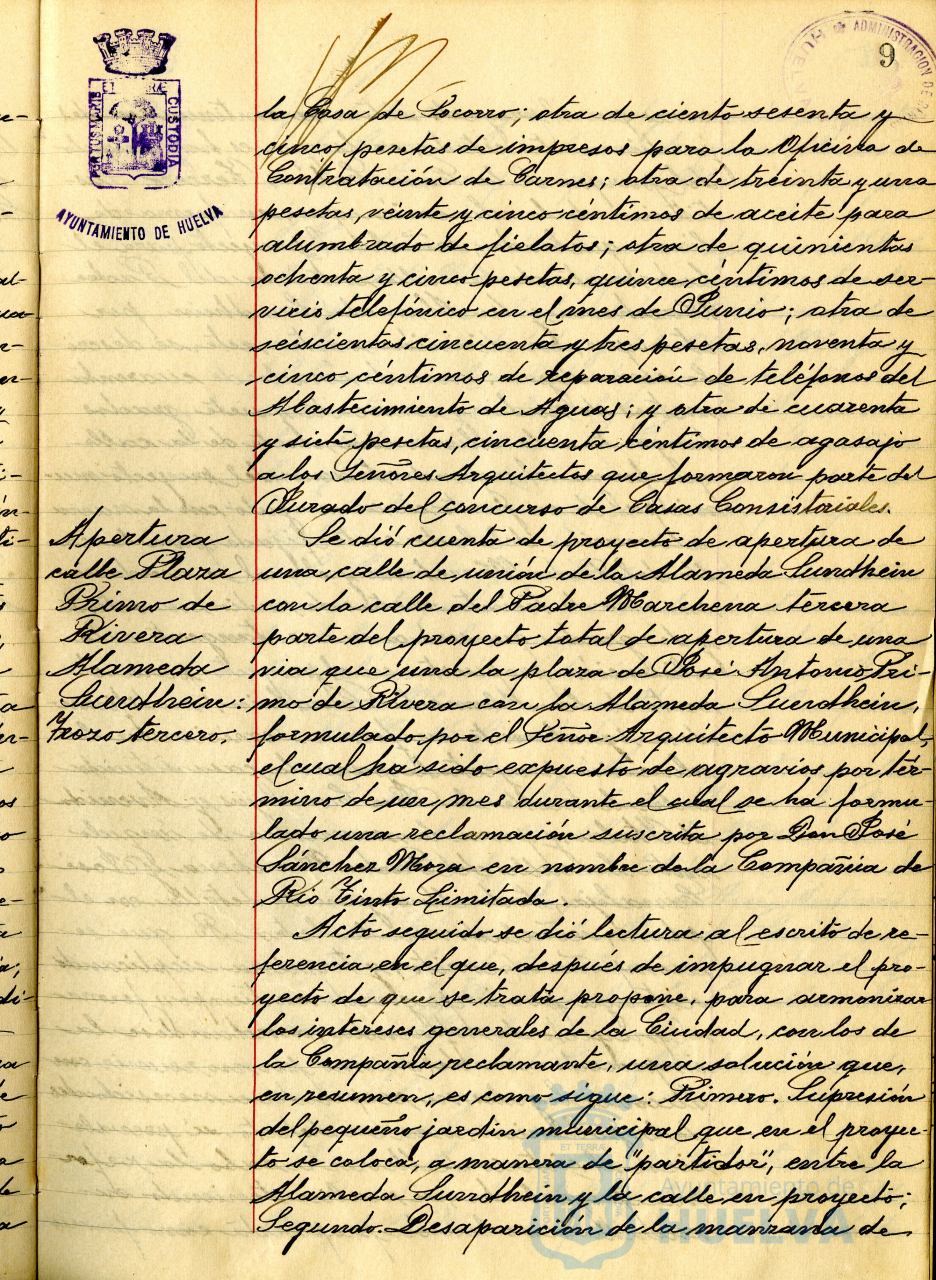 9
ADMINISTRACION DE
HUEL
CUSTODIA
AYUNTAMIENTO DE HUELVA
la Casa de Socorro; otra de ciento sesenta y
cinco pesetas de impresos para la Oficina de
Contratación de Carnes; otra de treinta y una
pesetas, veinte y cinco céntimos de aceite para
alumbrado de fielatos; otra de quinientas
ochenta y cinco pesetas, quince céntimos de ser-
vicio telefónico en el mes de Junio; otra de
seiscientas cincuenta y tres pesetas, noventa y
cinco céntimos de reparación de teléfonos del
Abastecimiento de Aguas; y otra de cuarenta
y siete pesetas, cincuenta céntimos de agasajo
a los Señores Arquitectos que formaron parte del
Jurado del concurso de Casas Consistoriales.
Apertura
calle Plaza
Primo de
Rivera
Alameda
Sundhein:
Trozo tercero.
Se dió cuenta de proyecto de apertura de
una calle de unión de la Alameda Sundhein
con la calle del Padre Marchena tercera
parte del proyecto total de apertura de una
via que una la plaza de José Antonio Pri-
mo de Rivera con la Alameda Sundhein,
formulado por el Señor Arquitecto Municipal,
el cual ha sido expuesto de agravios por tér-
mino de un mes durante el cual se ha formu-
lado una reclamación suscrita por Don José
Sánchez Mora en nombre de la Compañia de
Rio Tinto Limitada.
Acto seguido se dió lectura al escrito de re-
ferencia en el que, después de impugnar el pro-
yecto de que se trata propone, para armonizar
los intereses generales de la Ciudad, con los de
la Compañia reclamante, una solución que,
en resumen, es como sigue: Primero. Supresión
del pequeño jardin municipal que en el proyec-
to se coloca, a manera de "partidor", entre la
Alameda Sundhein y la calle en proyecto;
Segundo. Desaparición de la manzana de
Ayuntamiento de
HUELVA